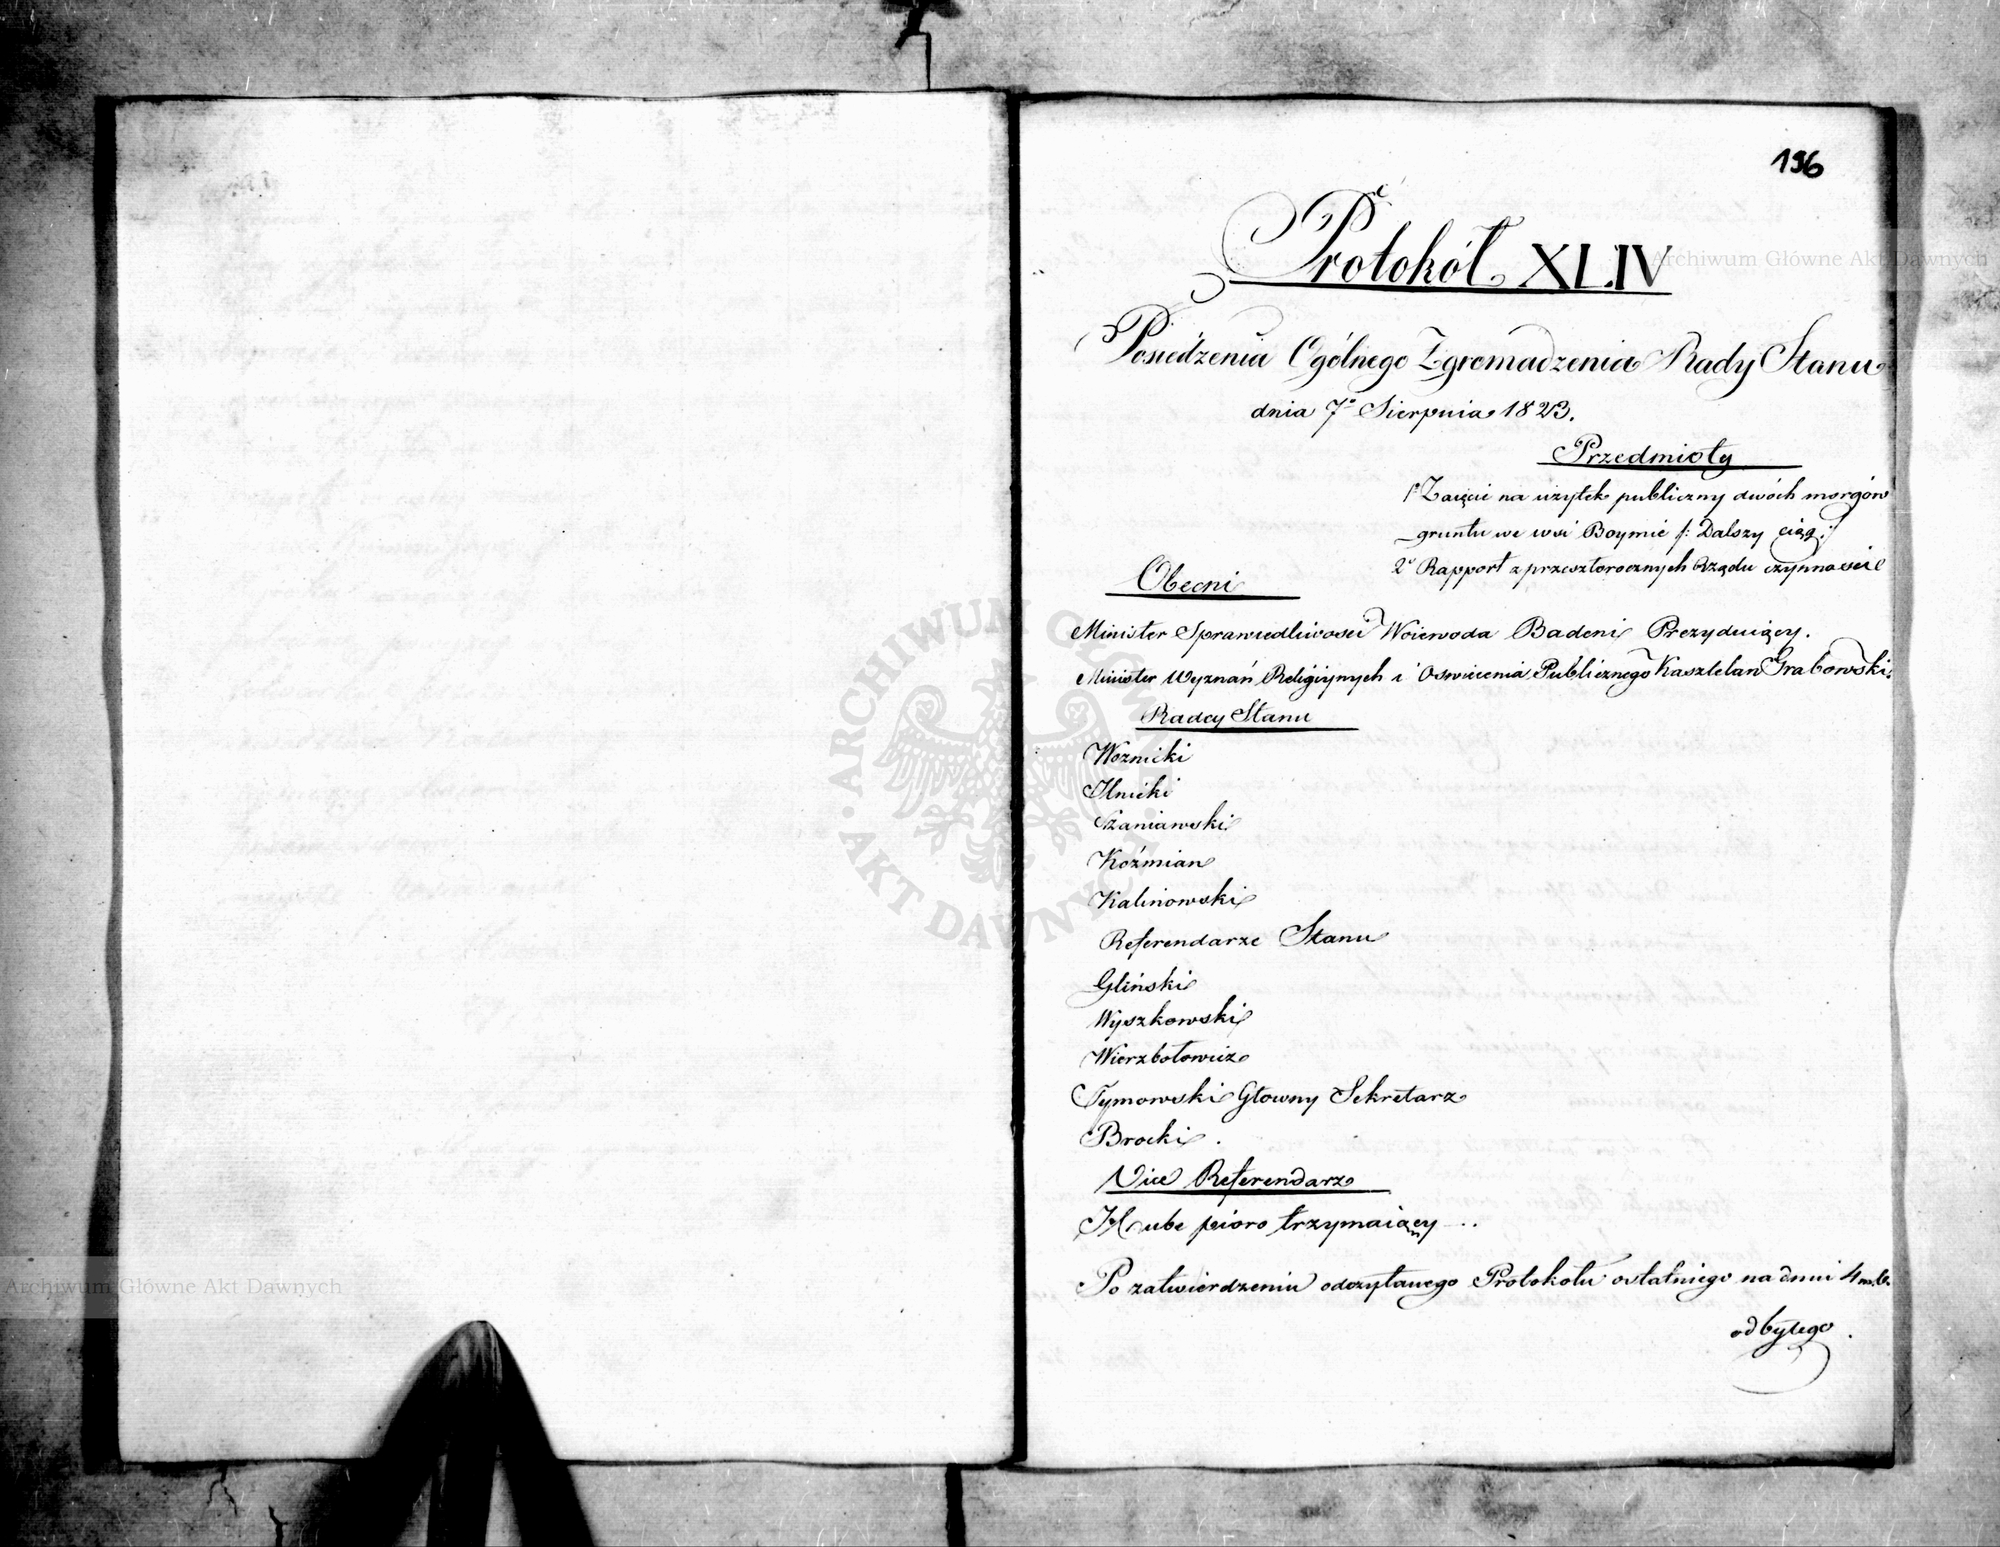 196
Protokół XLIV
Posiedzenia Ogólnego Zgromadzenia Rady Stanu
dnia 7º Sierpnia 1823.
Przedmioty
1º Zaięcie na użytek publiczny dwóch morgów
gruntu we wsi Boymie /: Dalszy ciąg :/
2º Rapport z przeszłorocznych Rządu czynności
Obecni
Minister Sprawiedliwości Woiewoda Badeni Prezyduiący.
Minister Wyznań Religiynych i Oświecenia Publicznego Kasztelan Grabowski.
Radcy Stanu
Woznicki
Ilnicki
Szaniawski
Koźmian
Kalinowski
Referendarze Stanu
Gliński
Wyszkowski
Wierzbołowicz
Tymowski Głowny Sekretarz
Brocki.
Vice Referendarz
Hube pioro trzymaiący...
Po zatwierdzeniu odczytanego Protokołu ostatniego na dniu 4 m.b.
odbytego.
Archiwum Główne Akt Dawnych
ARCHIWUM GŁÓWNE AKT DAWNYCH
Archiwum Główne Akt Dawnych